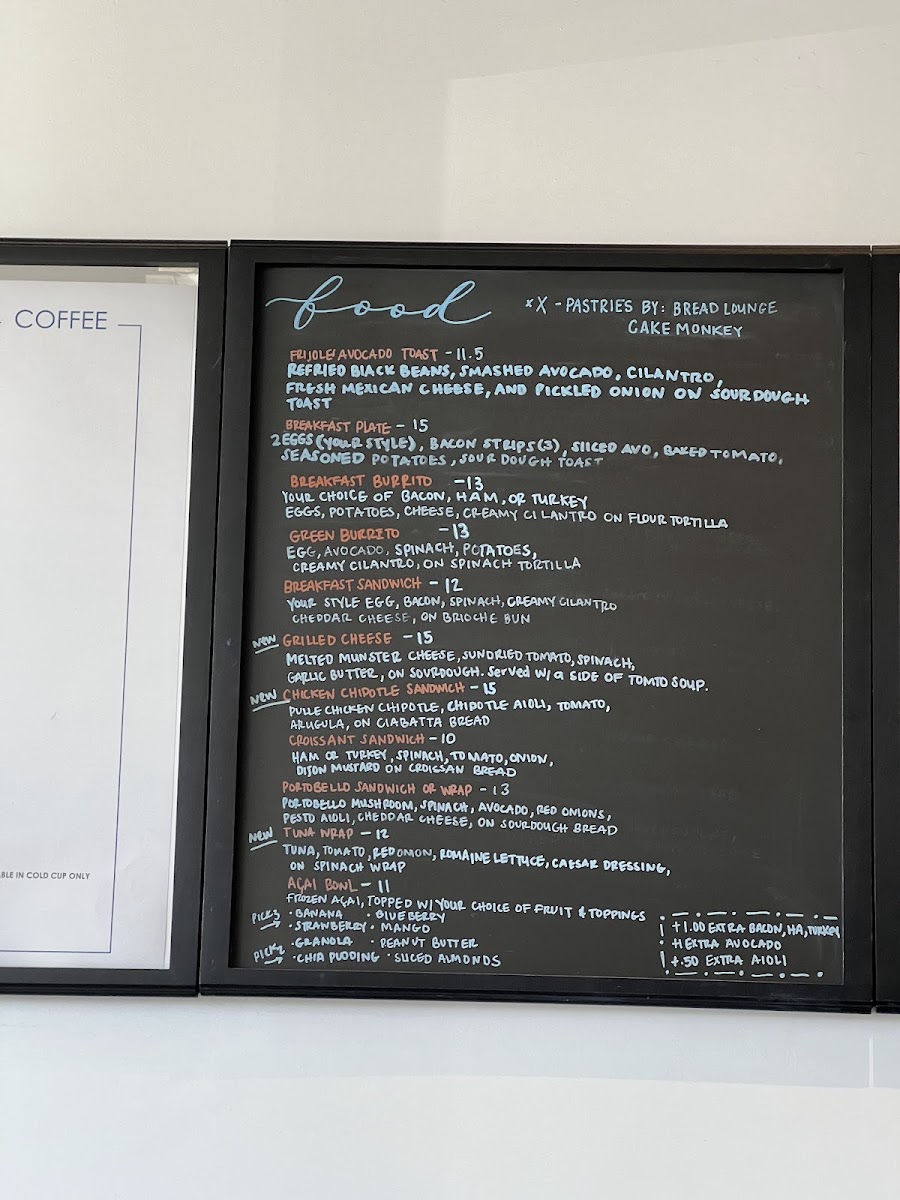 COFFEE
ABLE IN COLD CUP ONLY
food
*X - PASTRIES BY: BREAD LOUNGE
CAKE MONKEY
FRIJOLE/AVOCADO TOAST - 11.5
REFRIED BLACK BEANS, SMASHED AVOCADO, CILANTRO,
FRESH MEXICAN CHEESE, AND PICKLED ONION ON SOURDOUGH
TOAST
BREAKFAST PLATE - 15
2 EGGS (YOUR STYLE), BACON STRIPS (3), SLICED AVO, BAKED TOMATO,
SEASONED POTATOES, SOUR DOUGH TOAST
BREAKFAST BURRITO - 13
YOUR CHOICE OF BACON, HAM, OR TURKEY
EGGS, POTATOES, CHEESE, CREAMY CILANTRO ON FLOUR TORTILLA
GREEN BURRITO - 13
EGG, AVOCADO, SPINACH, POTATOES,
CREAMY CILANTRO, ON SPINACH TORTILLA
BREAKFAST SANDWICH - 12
YOUR STYLE EGG, BACON, SPINACH, CREAMY CILANTRO
CHEDDAR CHEESE, ON BRIOCHE BUN
NEW GRILLED CHEESE - 15
MELTED MUNSTER CHEESE, SUNDRIED TOMATO, SPINACH,
GARLIC BUTTER, ON SOURDOUGH. Served W/ a SIDE OF TOMTO SOUP.
NEW CHICKEN CHIPOTLE SANDWICH - 15
PULLE CHICKEN CHIPOTLE, CHIPOTLE AIOLI, TOMATO,
ARUGULA, ON CIABATTA BREAD
CROISSANT SANDWICH - 10
HAM OR TURKEY, SPINACH, TOMATO, ONION,
DIJON MUSTARD ON CROISSAN BREAD
PORTOBELLO SANDWICH OR WRAP - 13
PORTOBELLO MUSHROOM, SPINACH, AVOCADO, RED ONIONS,
PESTO AIOLI, CHEDDAR CHEESE, ON SOURDOUGH BREAD
NEW TUNA WRAP - 12
TUNA, TOMATO, RED ONION, ROMAINE LETTUCE, CAESAR DRESSING,
ON SPINACH WRAP
AÇAI BOWL - 11
FROZEN AÇAI, TOPPED W/ YOUR CHOICE OF FRUIT & TOPPINGS
PICK 3 • BANANA • BLUEBERRY
• STRAWBERRY • MANGO
PICK 2 • GRANOLA • PEANUT BUTTER
• CHIA PUDDING • SLICED ALMONDS
+1.00 EXTRA BACON, HA, TURKEY
+1 EXTRA AVOCADO
+.50 EXTRA AIOLI